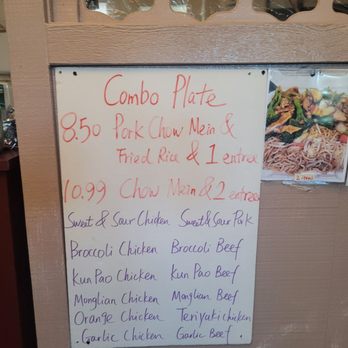 Combo Plate
8.50 Pork Chow Mein &
Fried Rice & 1 entree
10.99 Chow Mein & 2 entree
Sweet & Sour Chicken Sweet & Sour Pork
Broccoli Chicken Broccoli Beef
Kun Pao Chicken Kun Pao Beef
Monglian Chicken Monglian Beef
Orange Chicken Teriyaki chicken
. Garlic Chicken Garlic Beef .